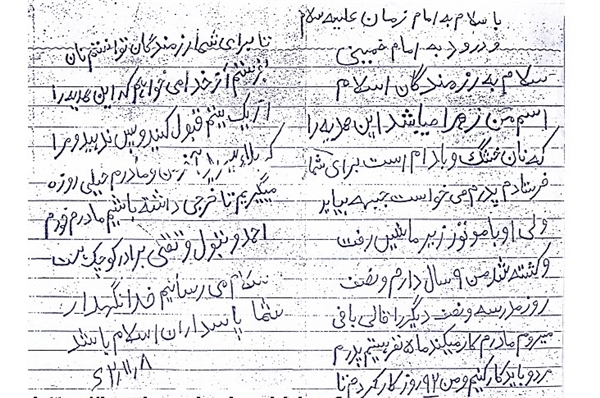 با سلام به امام زمان علیه سلام
و درود به امام خمینی
سلام به رزمندگان اسلام
اسم من زهرا میباشد این هدیه را
که نان خشک و بادام است برای شما
فرستادم پدرم می خواست جبهه بیاید
ولی او با موتور زیر ماشین رفت
و کشته شد من ۹ سال دارم و نصف
روز مدرسه و نصف دیگر را قالی بافی
میروم مادرم کار میکند ما ۵ نفر هستیم پدرم
مرد و باید کار کنیم و من ۹۲ روز کار کردم تا
تا برای شما رزمندگان توانستم نان
بفرستم از خدا می خواهم که این هدیه را
از یک یتیم قبول کنید و پس ندهید و مرا
که بلا ببرید آخر من و مادرم خیلی روزه
میگیریم تا خرجی داشته باشیم مادرم خودم
احمد و بتول و تقی برادر کوچک من
سلام می رسانیم خدا نگهدار
شما پاسداران اسلام باشد
۶۲/۱۱/۸